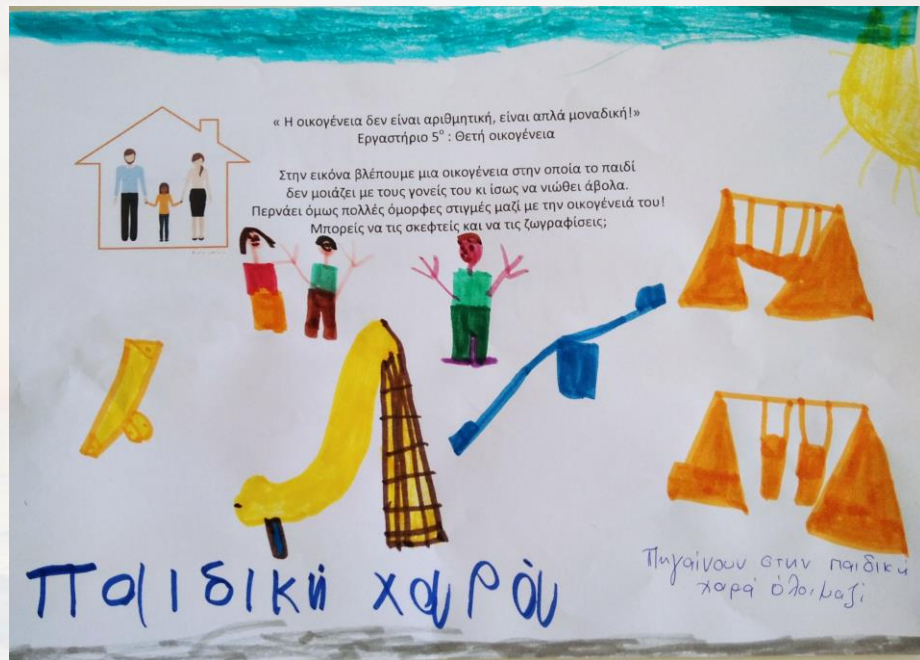 « Η οικογένεια δεν είναι αριθμητική, είναι απλά μοναδική!»
Εργαστήριο 5° : Θετή οικογένεια
Στην εικόνα βλέπουμε μια οικογένεια στην οποία το παιδί
δεν μοιάζει με τους γονείς του κι ίσως να νιώθει άβολα.
Περνάει όμως πολλές όμορφες στιγμές μαζί με την οικογένειά του!
Μπορείς να τις σκεφτείς και να τις ζωγραφίσεις;
Παιδική χαρά
Πηγαίνουν στην παιδική
χαρά όλοι μαζί